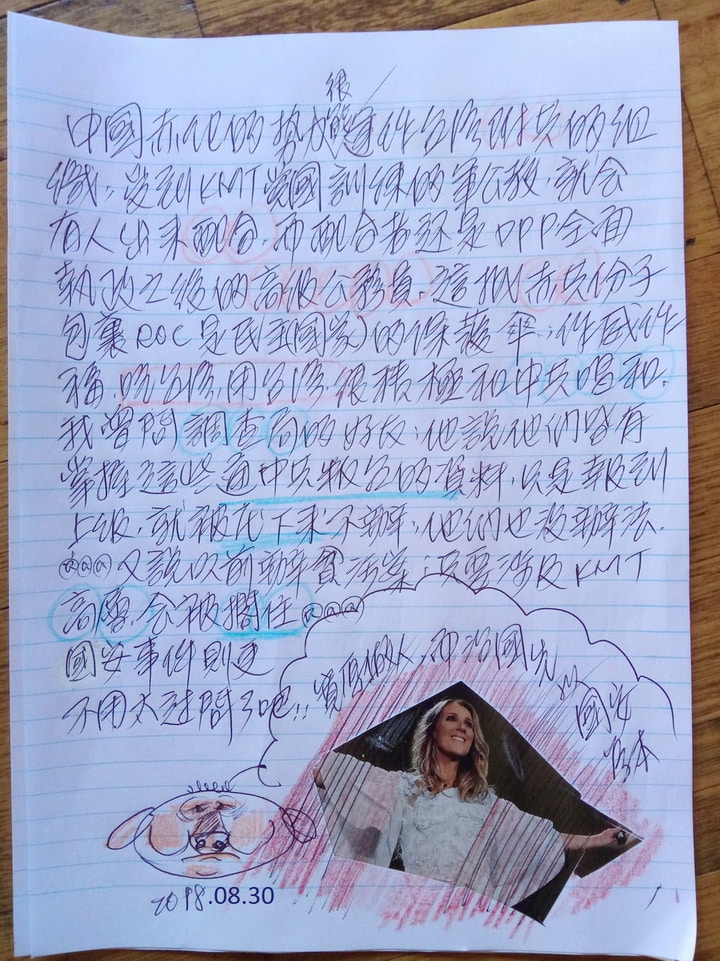 很
中國赤化的勢力能運作台灣附共的組
織，受到KMT黨國訓練的軍公教，就会
有人出來配合，而配合者还是DPP全面
執政之後的高級公務員，這批赤共份子
包裹ROC是民主國家的保護傘，作威作
福，吃台灣，用台灣，很積極和中共唱和，
我曾問調查局的好友，他說他們皆有
掌握這些通中共叛台的資料，只是報到
上級，就被压下來不辦，他們也沒辦法，
@@@又說以前辦貪污案，只要涉及KMT
高層，会被擋住@@@
國安事件則更
不用太過問了吧!!
做人，而治國先
以
國安
為本
2018.08.30